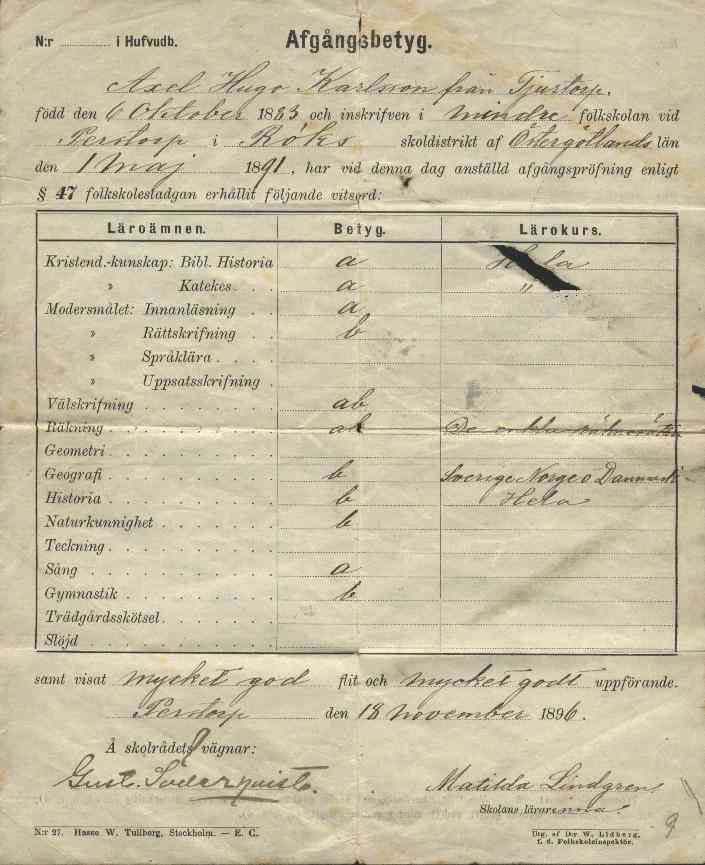 N:r i Hufvudb. Afgångsbetyg.
Axel Hugo Karlsson från Tjustorp.
född den 6 Oktober 1883 och inskrifven i mindre folkskolan vid
Perstorp i Röks skoldistrikt af Östergötlands län
den 1 maj 1891, har vid denna dag anställd afgångspröfning enligt
§ 47 folkskolestadgan erhållit följande vitsord:
Läroämnen. Betyg. Lärokurs.
Kristend.-kunskap: Bibl. Historia a Hela
» Katekes. a "
Modersmålet: Innanläsning a
» Rättskrifning b
» Språklära
» Uppsatsskrifning
Välskrifning ab
Räkning ab De enkla räknesätten
Geometri
Geografi b Sverige Norge o Danmark
Historia b Hela
Naturkunnighet b
Teckning
Sång a
Gymnastik b
Trädgårdsskötsel
Slöjd
samt visat mycket god flit och mycket godt uppförande.
Perstorp den 18 november 1896.
Å skolrådets vägnar:
Gust. Söderqvist. Matilda Lindgren
Skolans lärarinna.
9
N:r 27. Hasse W. Tullberg, Stockholm. — E. C. Utg. af D:r W. Lidberg,
f. d. Folkskoleinspektör.